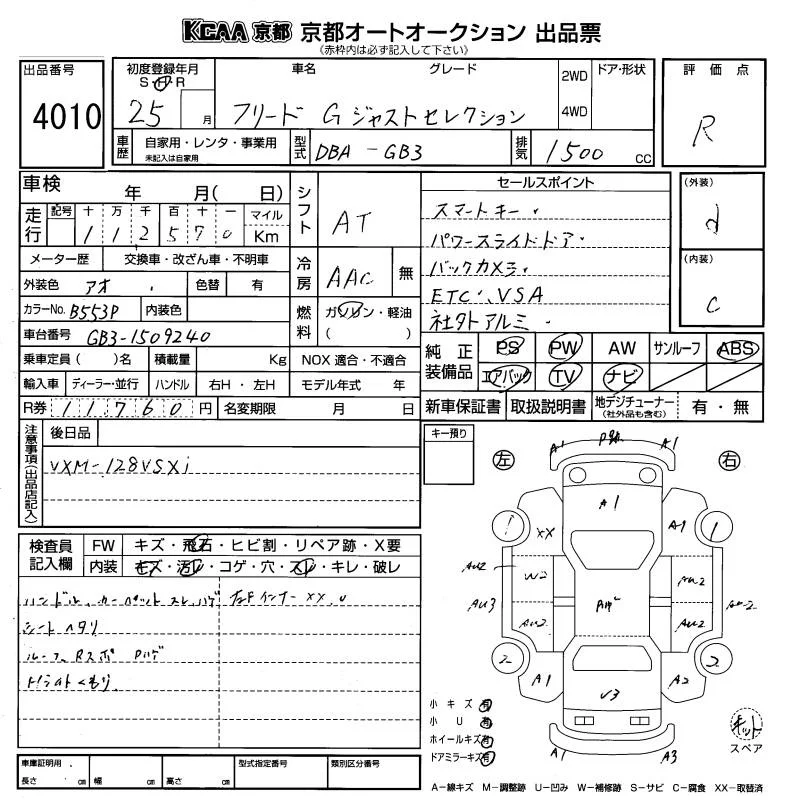 KCAA 京都 京都オートオークション 出品票
(赤枠内は必ず記入して下さい)
出品番号
4010
初度登録年月
S・H・R
25 月
車名 グレード
フリード G ジャストセレクション
2WD
4WD
ドア・形状
評価点
R
車歴
自家用・レンタ・事業用
未記入は自家用
型式
DBA-GB3
排気
1500 cc
車検 年 月( 日)
走行
記号 十 万 千 百 十 一
112570
マイル
Km
メーター歴 交換車・改ざん車・不明車
外装色 アオ 色替 有
カラーNo. B553P 内装色
車台番号 GB3-1509240
乗車定員( )名 積載量 Kg NOX 適合・不適合
輸入車 ディーラー・並行 ハンドル 右H・左H モデル年式 年
R券 11760円 名変期限 月 日
シフト
AT
冷房
AAC 無
燃料
ガソリン・軽油
( )
セールスポイント
スマートキー.
パワースライドドア.
バックカメラ.
ETC、VSA
社外アルミ.
(外装)
d
(内装)
c
純正装備品
PS PW AW サンルーフ ABS
エアバック TV ナビ
新車保証書 取扱説明書 地デジチューナー(社外品も含む) 有・無
注意事項(出品店記入)
後日品
VXM-128VSXi
キー預り
検査員記入欄
FW キズ・飛石・ヒビ割・リペア跡・X要
内装 キズ・汚レ・コゲ・穴・スレ・キレ・破レ
ハンドル、カーペットスレ、ハゲ
シートヘタリ
ルーフ、Rスポ Pハゲ
左 右
A1 A1
A1
XX A1
AU2 W2 AU2
AU3 AU2 AU2
A1 U3 A2
A1 A3
小キズ 有
小U 有
ホイールキズ 有
ドアミラーキズ 有
キット
スペア
車庫証明用.
長さ cm 幅 cm 高さ cm
型式指定番号
類別区分番号
A-線キズ M-調整跡 U-凹み W-補修跡 S-サビ C-腐食 XX-取替済